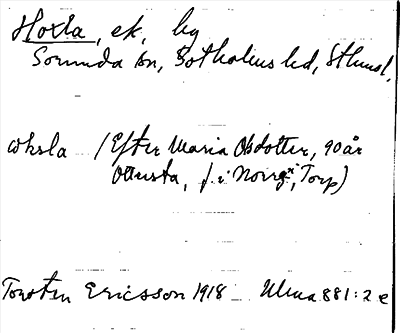 Hoxla, ek, hg
Sorunda sn, Sotholms hd, Sthmsl.
ωksla (Efter Maria Olsdotter, 90 år
Ottersta, f. i Norrg., Torp)
Torsten Ericsson 1918 Ulma 881:2 e